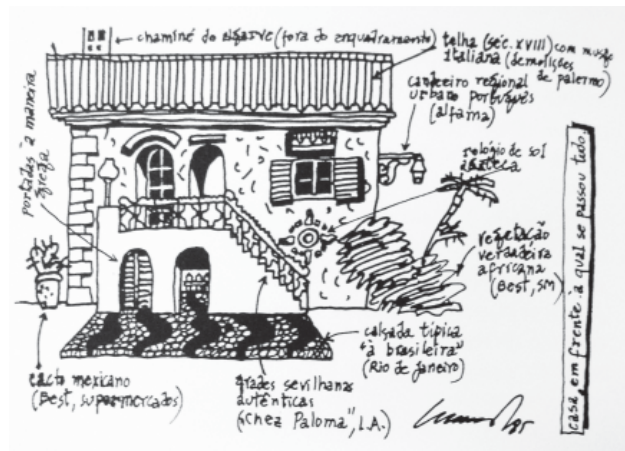 chaminé do algarve (fora do enquadramento)
telha (séc. XVIII) com musgo
italiana (demolições
de palermo)
candeeiro regional
urbano português
(alfama)
relógio de sol
azteca
portadas à maneira
grega
vegetação
verdadeira
africana
(Best, SM)
calçada típica
"à brasileira"
(Rio de janeiro)
cacto mexicano
(Best, supermercados)
grades sevilhanas
autênticas
("chez Paloma", L.A.)
casa em frente à qual se passou tudo.